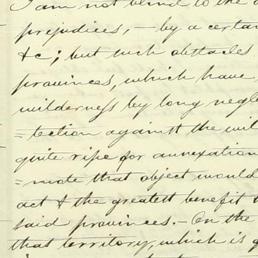 I am not blind to the
prejudices, - by a certain
&c; but such obstacles
provinces, which have
wilderness by long negle
=tection against the wil
quite ripe for annexation
=mote that object would
act & the greatest benefit t
said provinces. - On the
that territory, which is g